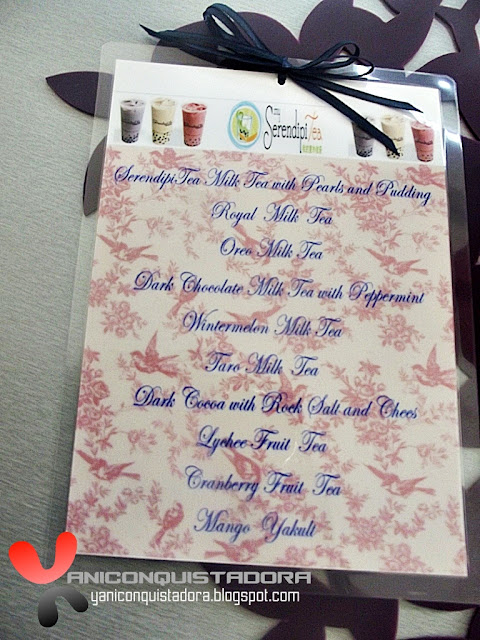 my
SerendipiTea
SerendipiTea Milk Tea with Pearls and Pudding
Royal Milk Tea
Oreo Milk Tea
Dark Chocolate Milk Tea with Peppermint
Wintermelon Milk Tea
Taro Milk Tea
Dark Cocoa with Rock Salt and Chees
Lychee Fruit Tea
Cranberry Fruit Tea
Mango Yakult
YANICONQUISTADORA
yaniconquistadora.blogspot.com